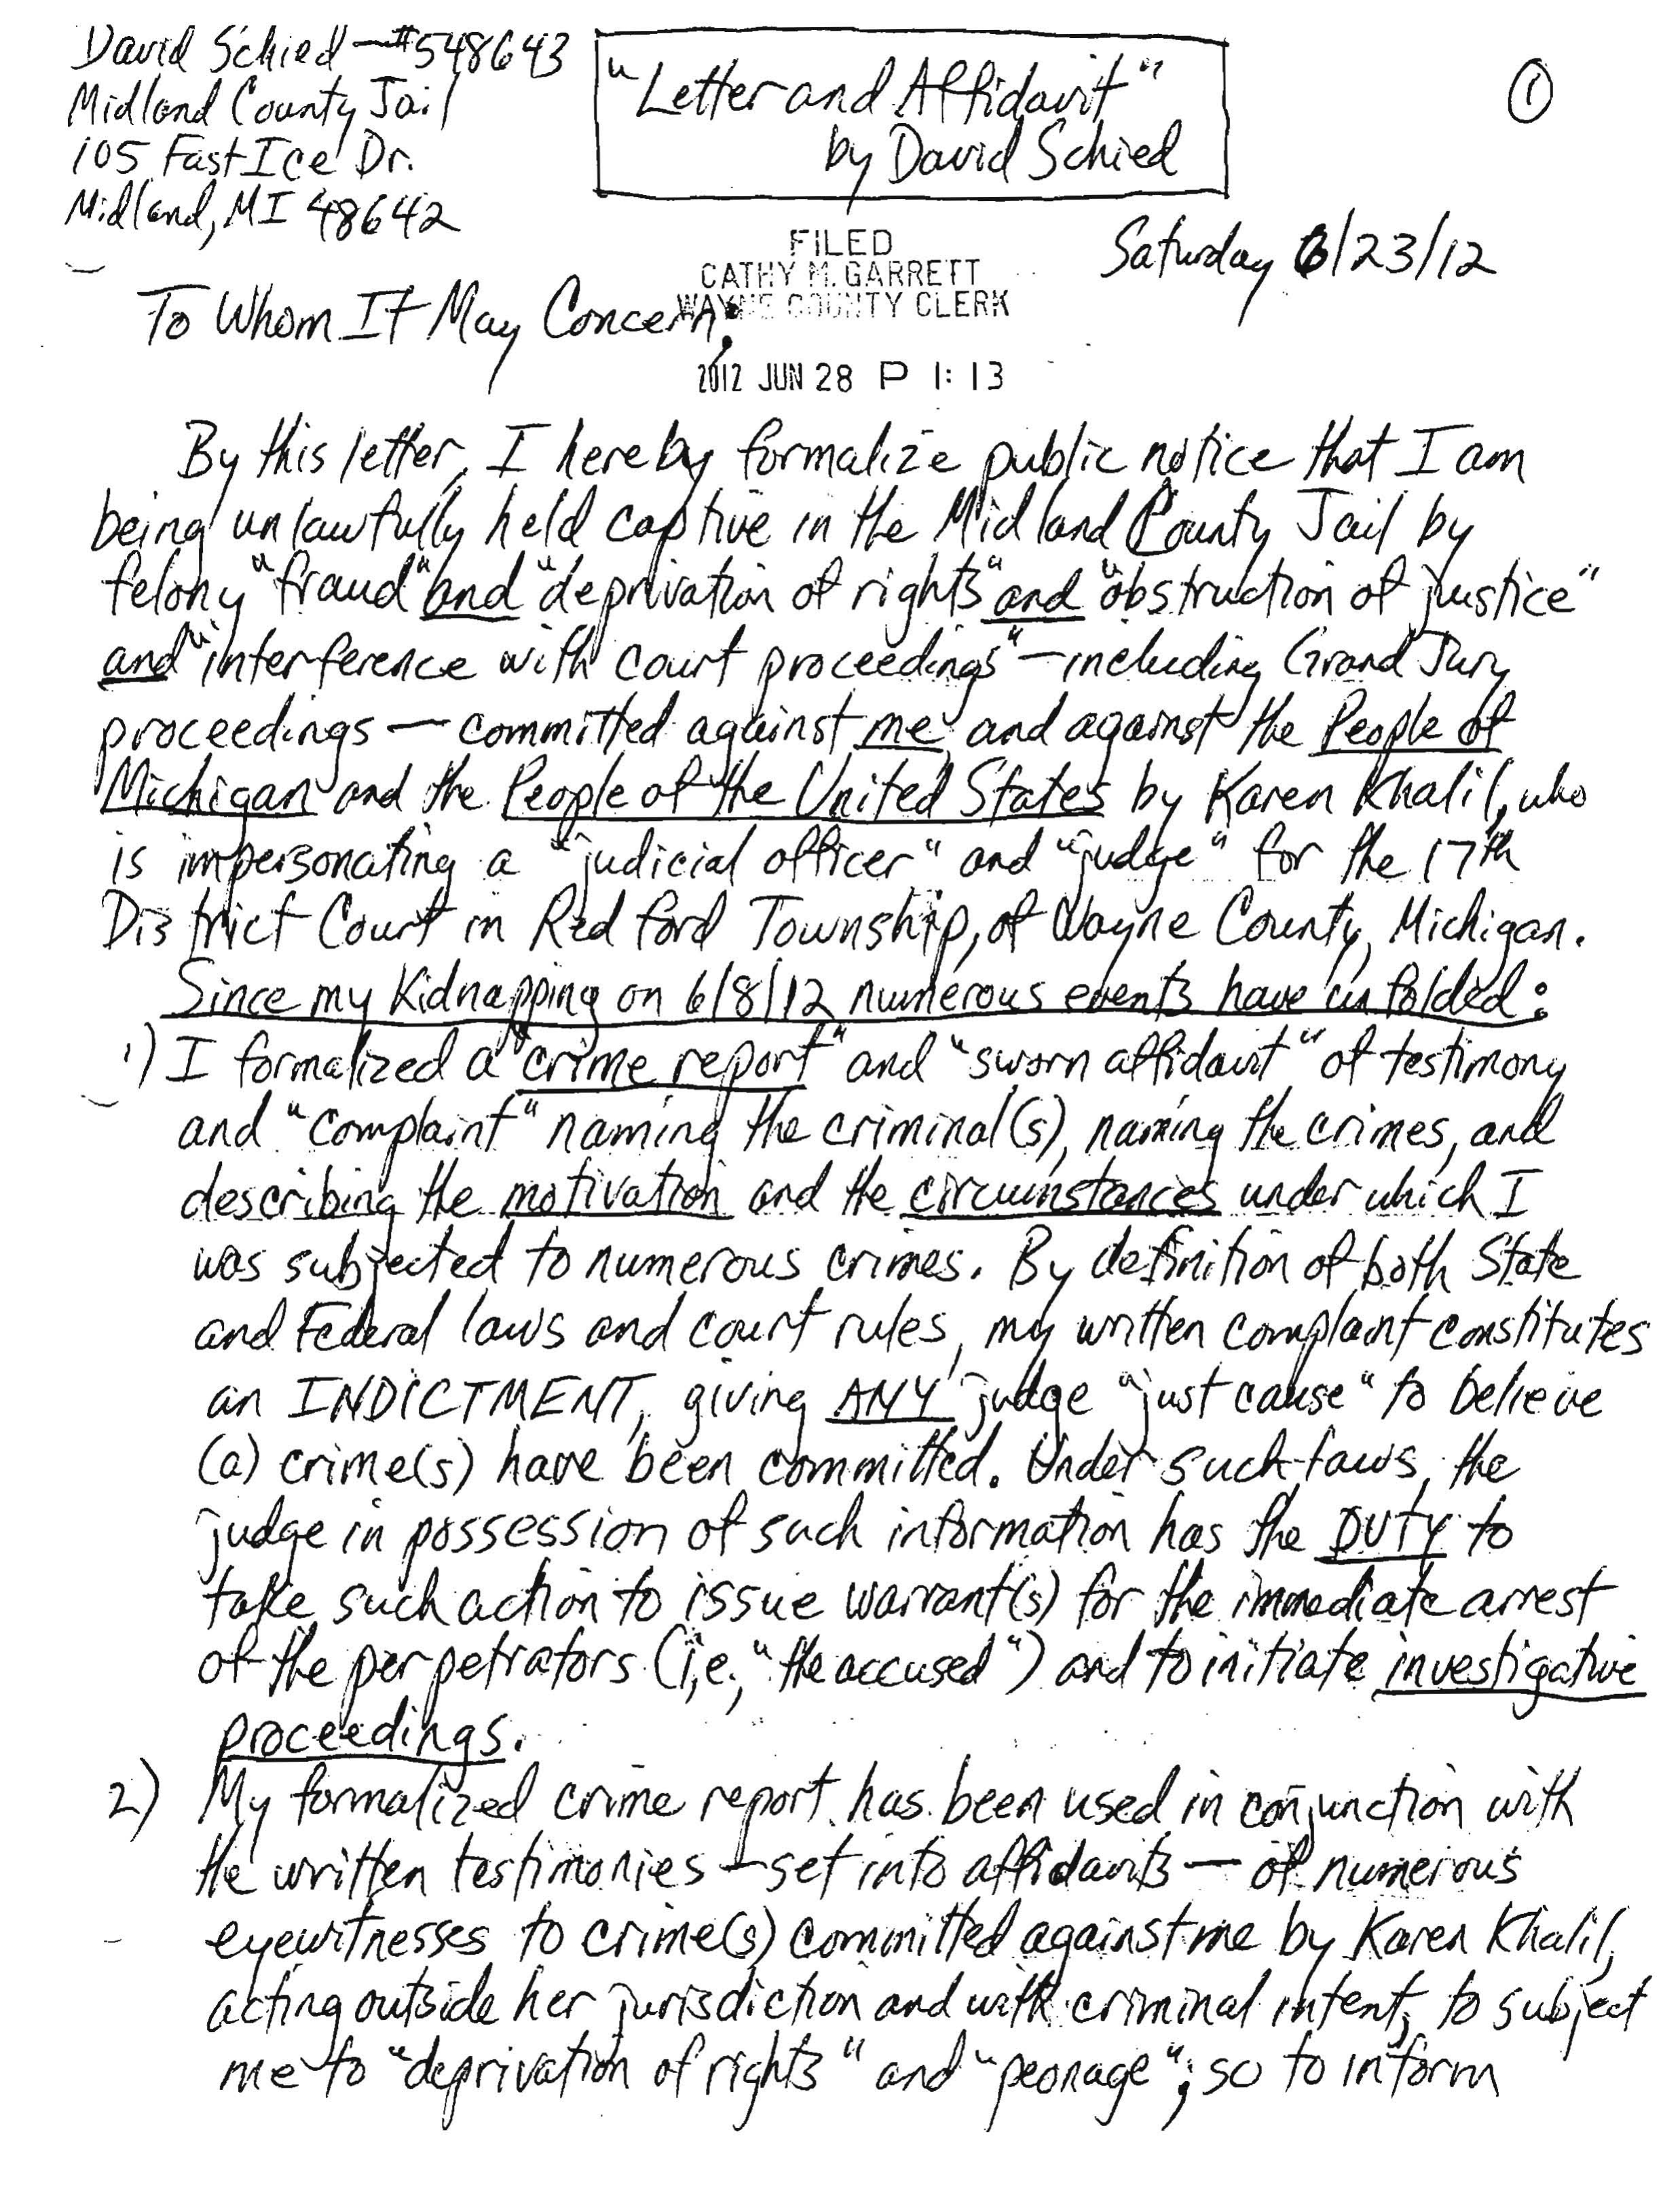 David Schied —#548643
Midland County Jail
105 Fast Ice Dr.
Midland, MI 48642
"Letter and Affidavit"
by David Schied
①
Saturday 6/23/12
FILED
CATHY M. GARRETT
WAYNE COUNTY CLERK
2012 JUN 28 P 1:13
To Whom It May Concern:
By this letter, I hereby formalize public notice that I am
being unlawfully held captive in the Midland County Jail by
felony "fraud" and "deprivation of rights" and "obstruction of justice"
and "interference with court proceedings" — including Grand Jury
proceedings — committed against me and against the People of
Michigan and the People of the United States by Karen Khalil, who
is impersonating a "judicial officer" and "judge" for the 17th
District Court in Redford Township, of Wayne County, Michigan.
Since my Kidnapping on 6/8/12 numerous events have unfolded:
1) I formalized a "crime report" and "sworn affidavit" of testimony
and "complaint" naming the criminal(s), naming the crimes, and
describing the motivation and the circumstances under which I
was subjected to numerous crimes. By definition of both State
and Federal laws and court rules, my written complaint constitutes
an INDICTMENT, giving ANY judge "just cause" to believe
(a) crime(s) have been committed. Under such laws, the
judge in possession of such information has the DUTY to
take such action to issue warrant(s) for the immediate arrest
of the perpetrators (i.e., "the accused") and to initiate investigative
proceedings.
2) My formalized crime report has been used in conjunction with
the written testimonies — set into affidavits — of numerous
eyewitnesses to crime(s) committed against me by Karen Khalil,
acting outside her jurisdiction and with criminal intent, to subject
me to "deprivation of rights" and "peonage"; so to inform